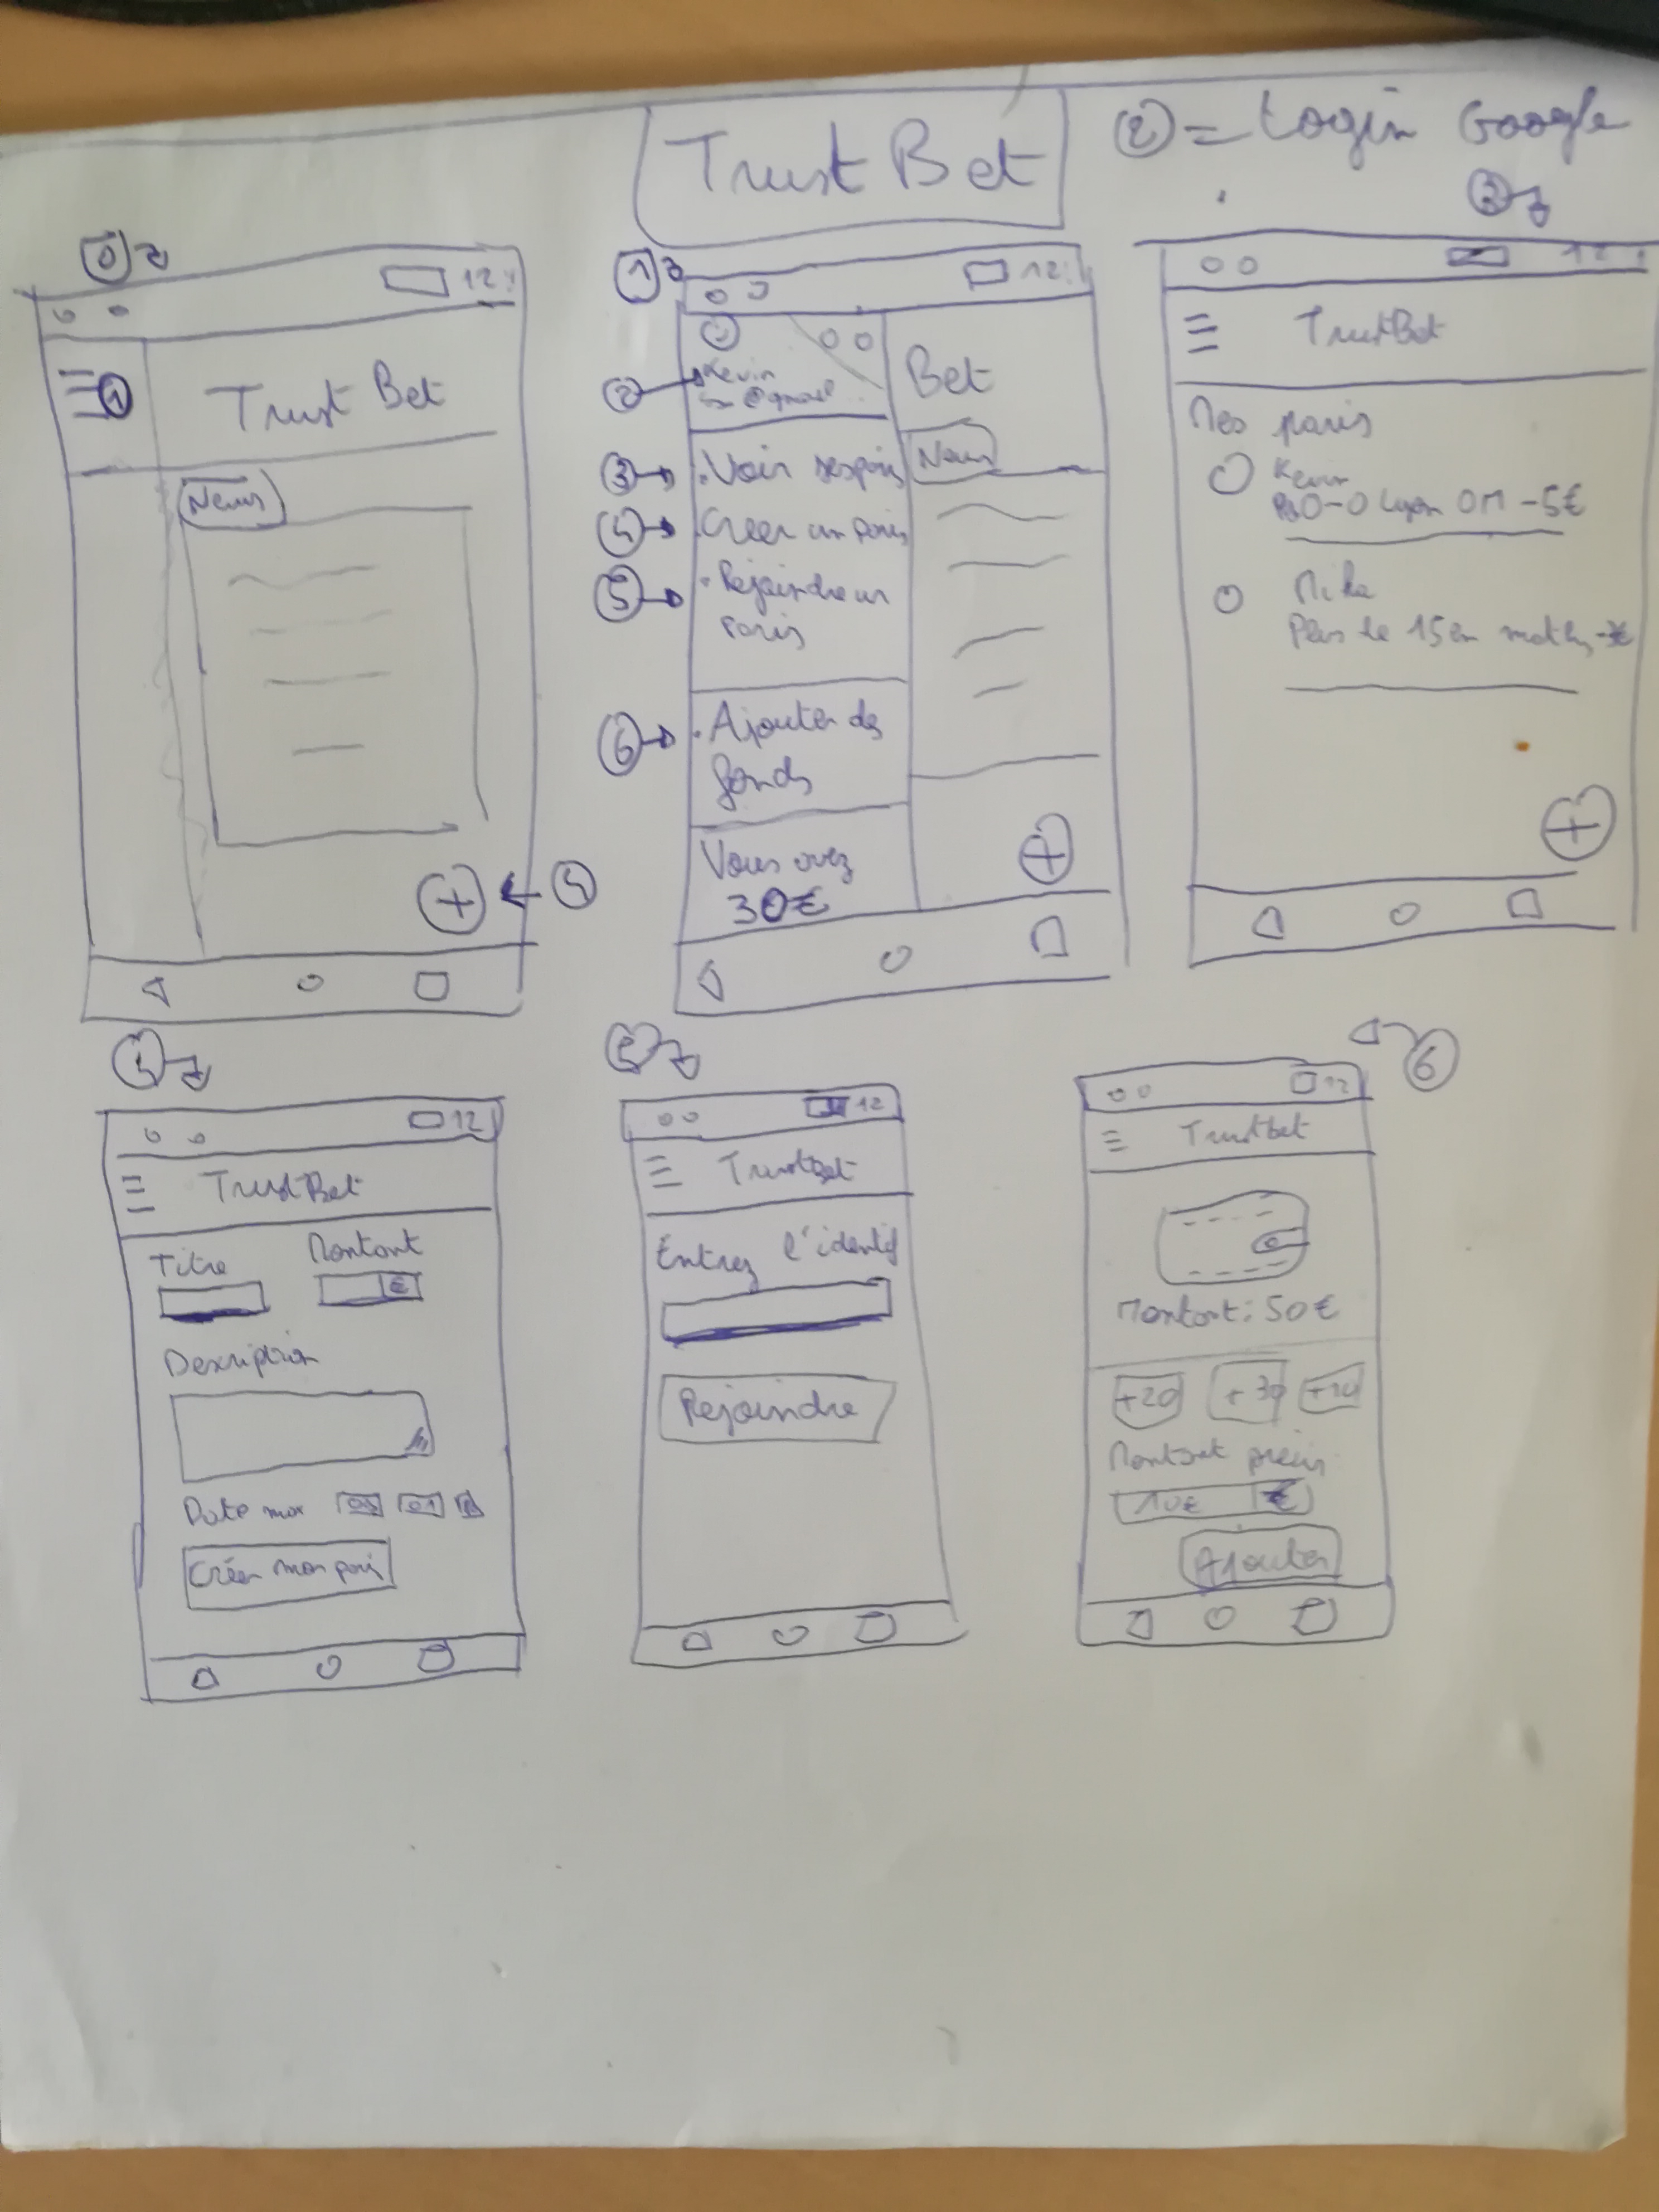 Trust Bet
2 = Login Google
3
0
12:
1
Trust Bet
News
4
1
12:
2
Kevin
@gmail
Bet
News
3
. Voir ses paris
4
. Créer un paris
5
. Rejoindre un
paris
6
. Ajouter des
fonds
Vous avez
30€
12:
TrustBet
Mes paris
Kevin
0-0 Lyon OM - 5€
Mika
Plus de 15 en maths
4
12
TrustBet
Titre
Montant
€
Description
Date max
01
Créer mon paris
5
12
TrustBet
Entrez l'identif
Rejoindre
6
12
Trustbet
Montant: 50€
+20
+30
Montant précis
10€
€
Ajouter